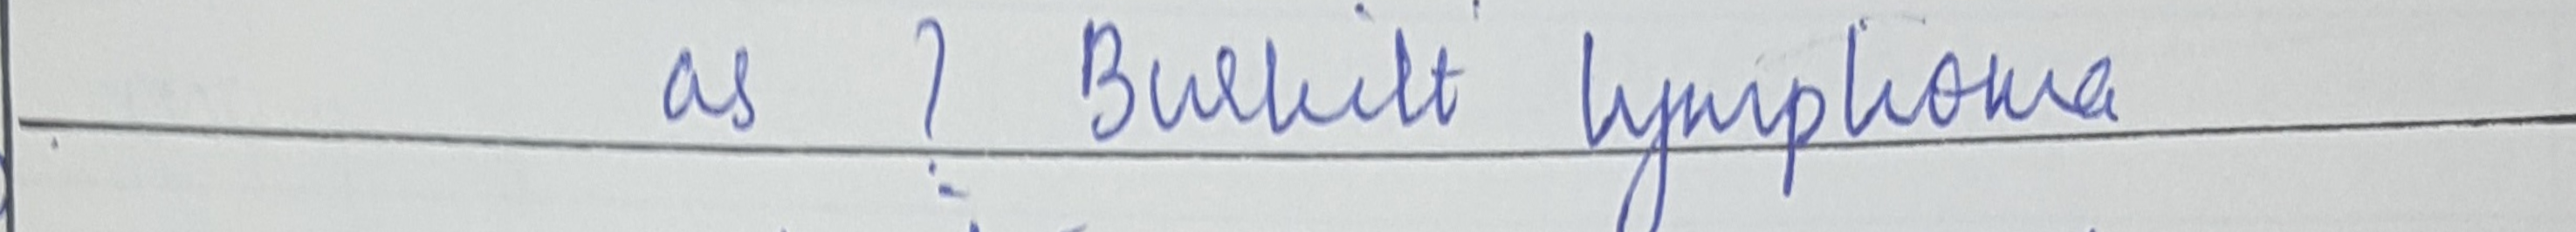 as ? Burkilt lymphoma